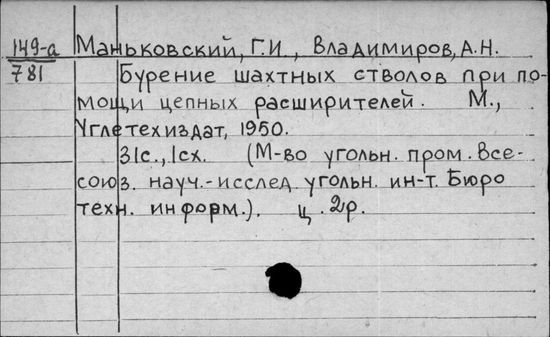 149-а Маньковский, Г.И., Владимиров, А.Н.
781 Бурение шахтных стволов при по-
мощи цепных расширителей. М.,
Углетехиздат, 1950.
31с., 1сх. (М-во угольн. пром. Все-
союз. науч.-исслед. угольн. ин-т. Бюро
техн. информ.). ц. 2р.